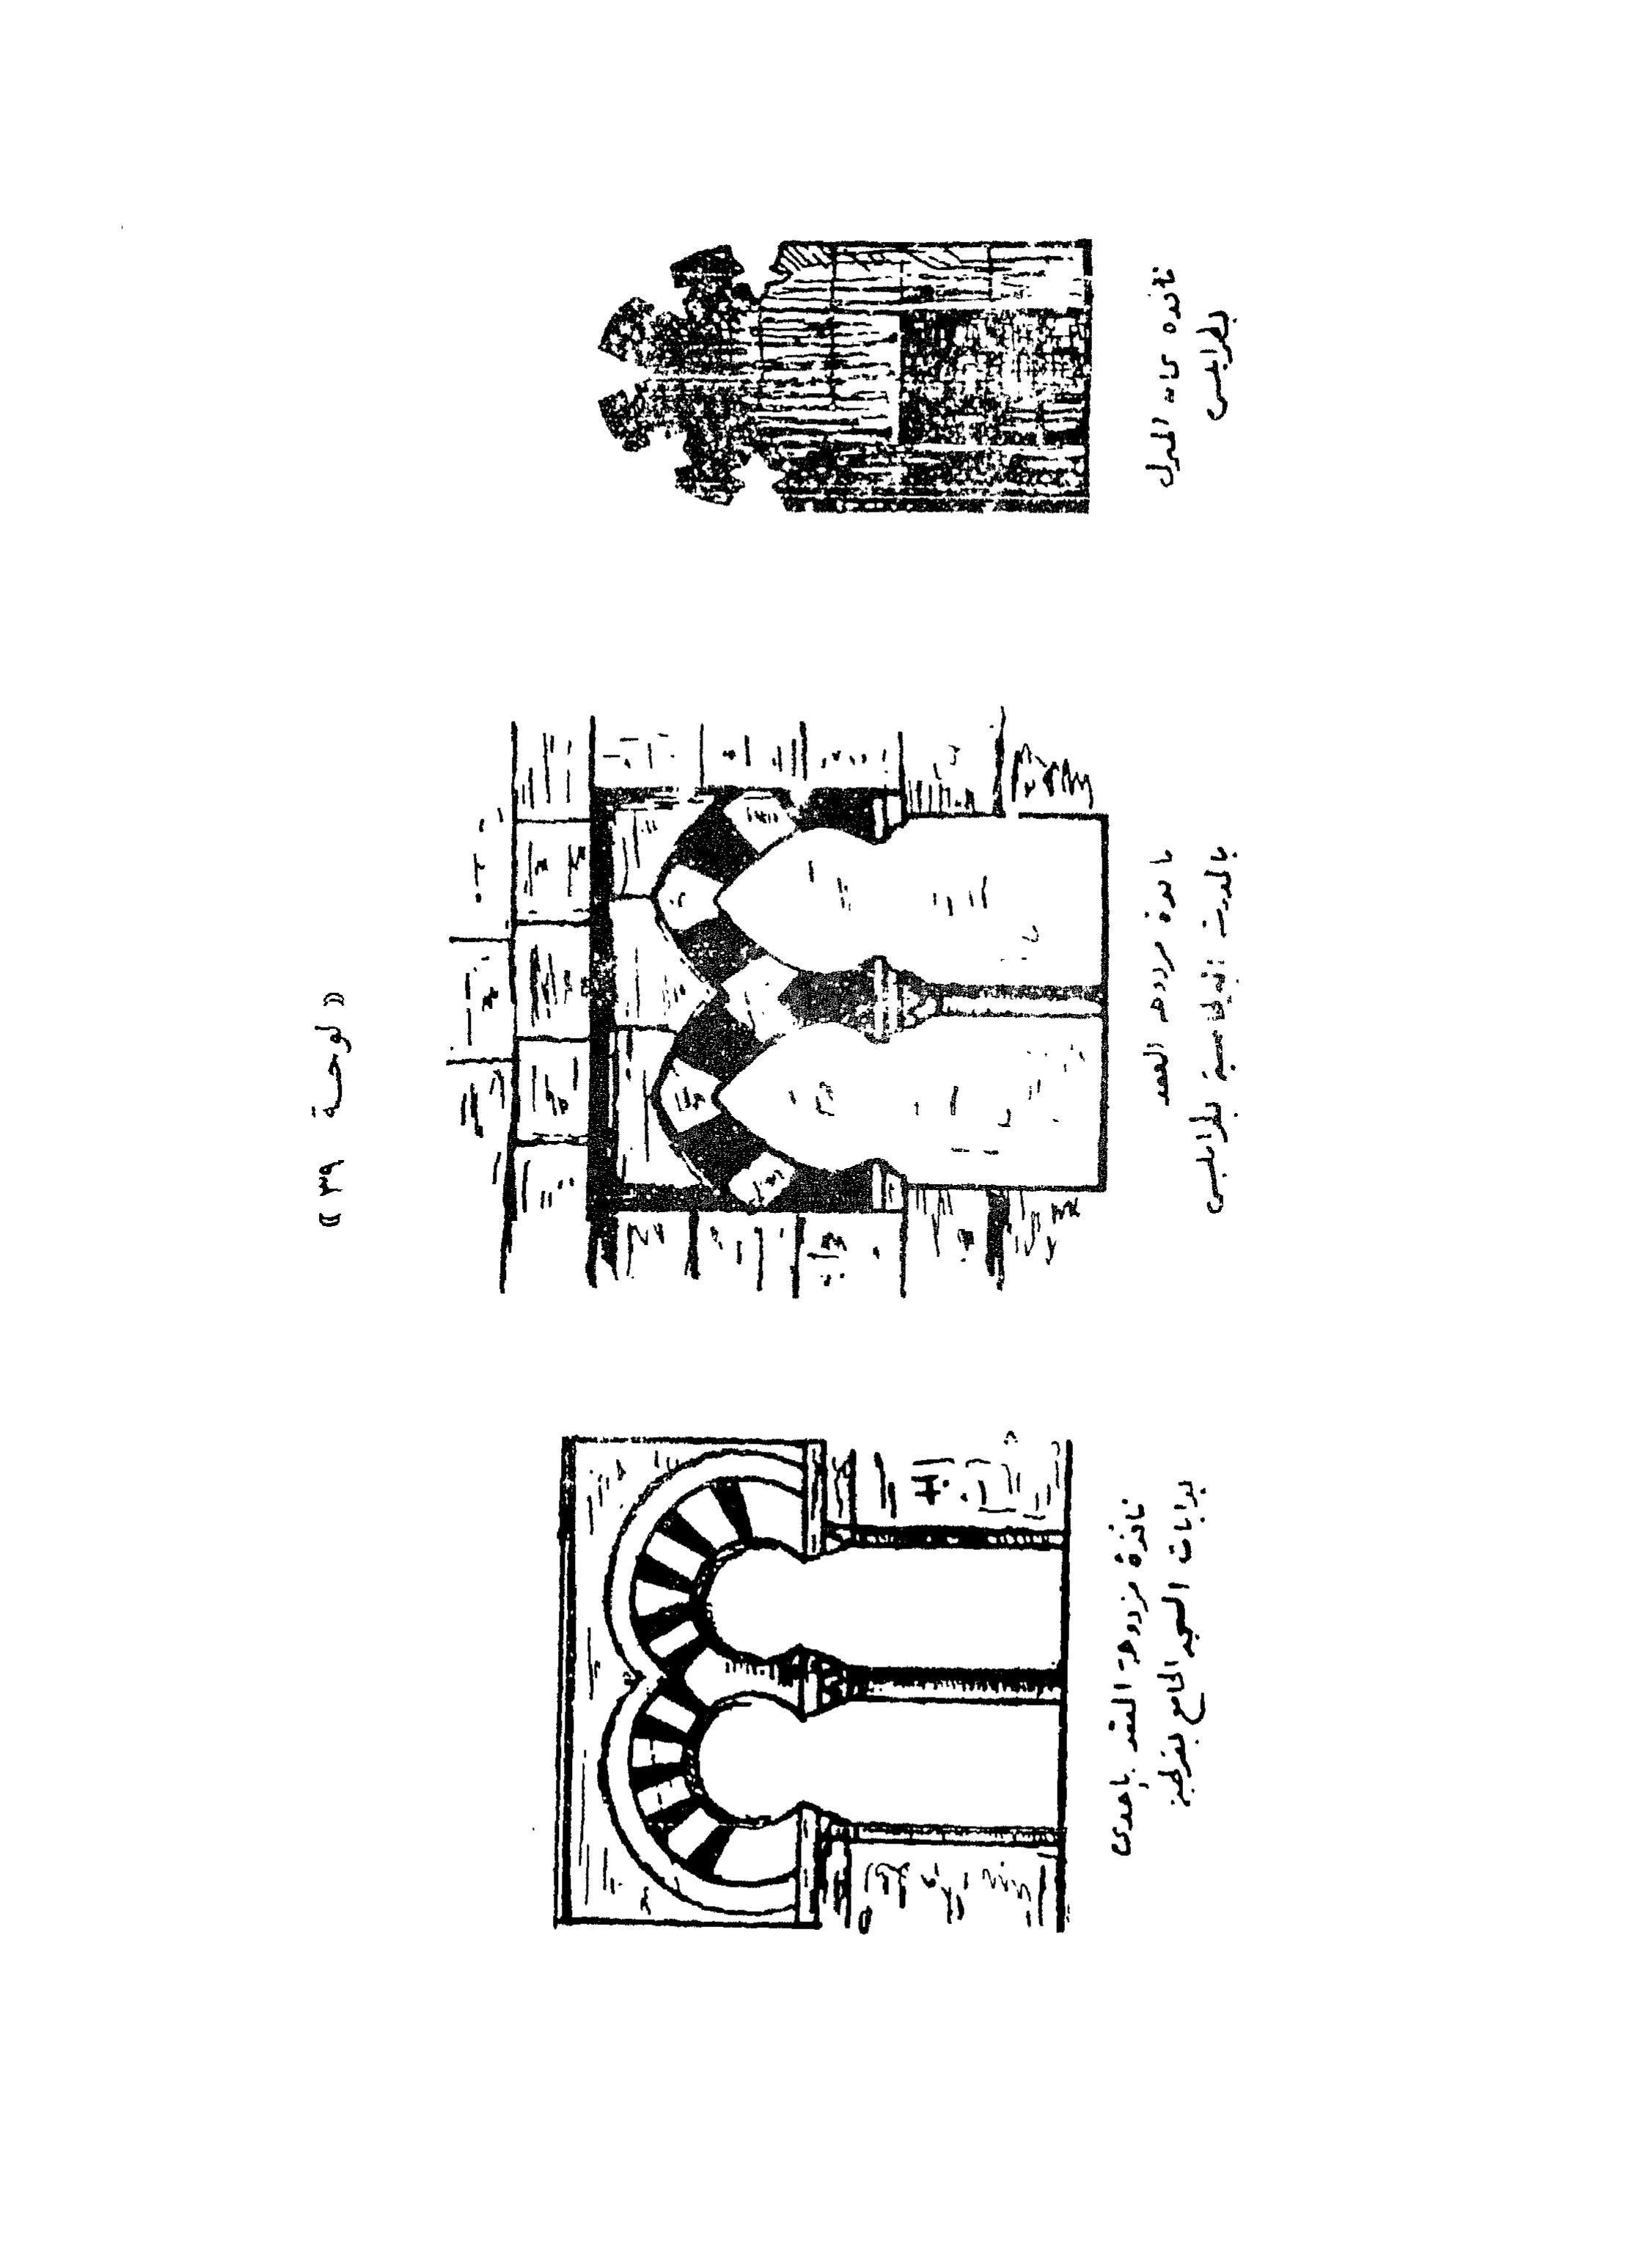 « لوحة ٣٩ »
نافذة خان المنزل
بطرابلس
نافذة مزدوجة العقد
بالمدرسة بطرابلس
نافذة مزدوجة العقد بإحدى
بوابات المسجد الجامع بقرطبة